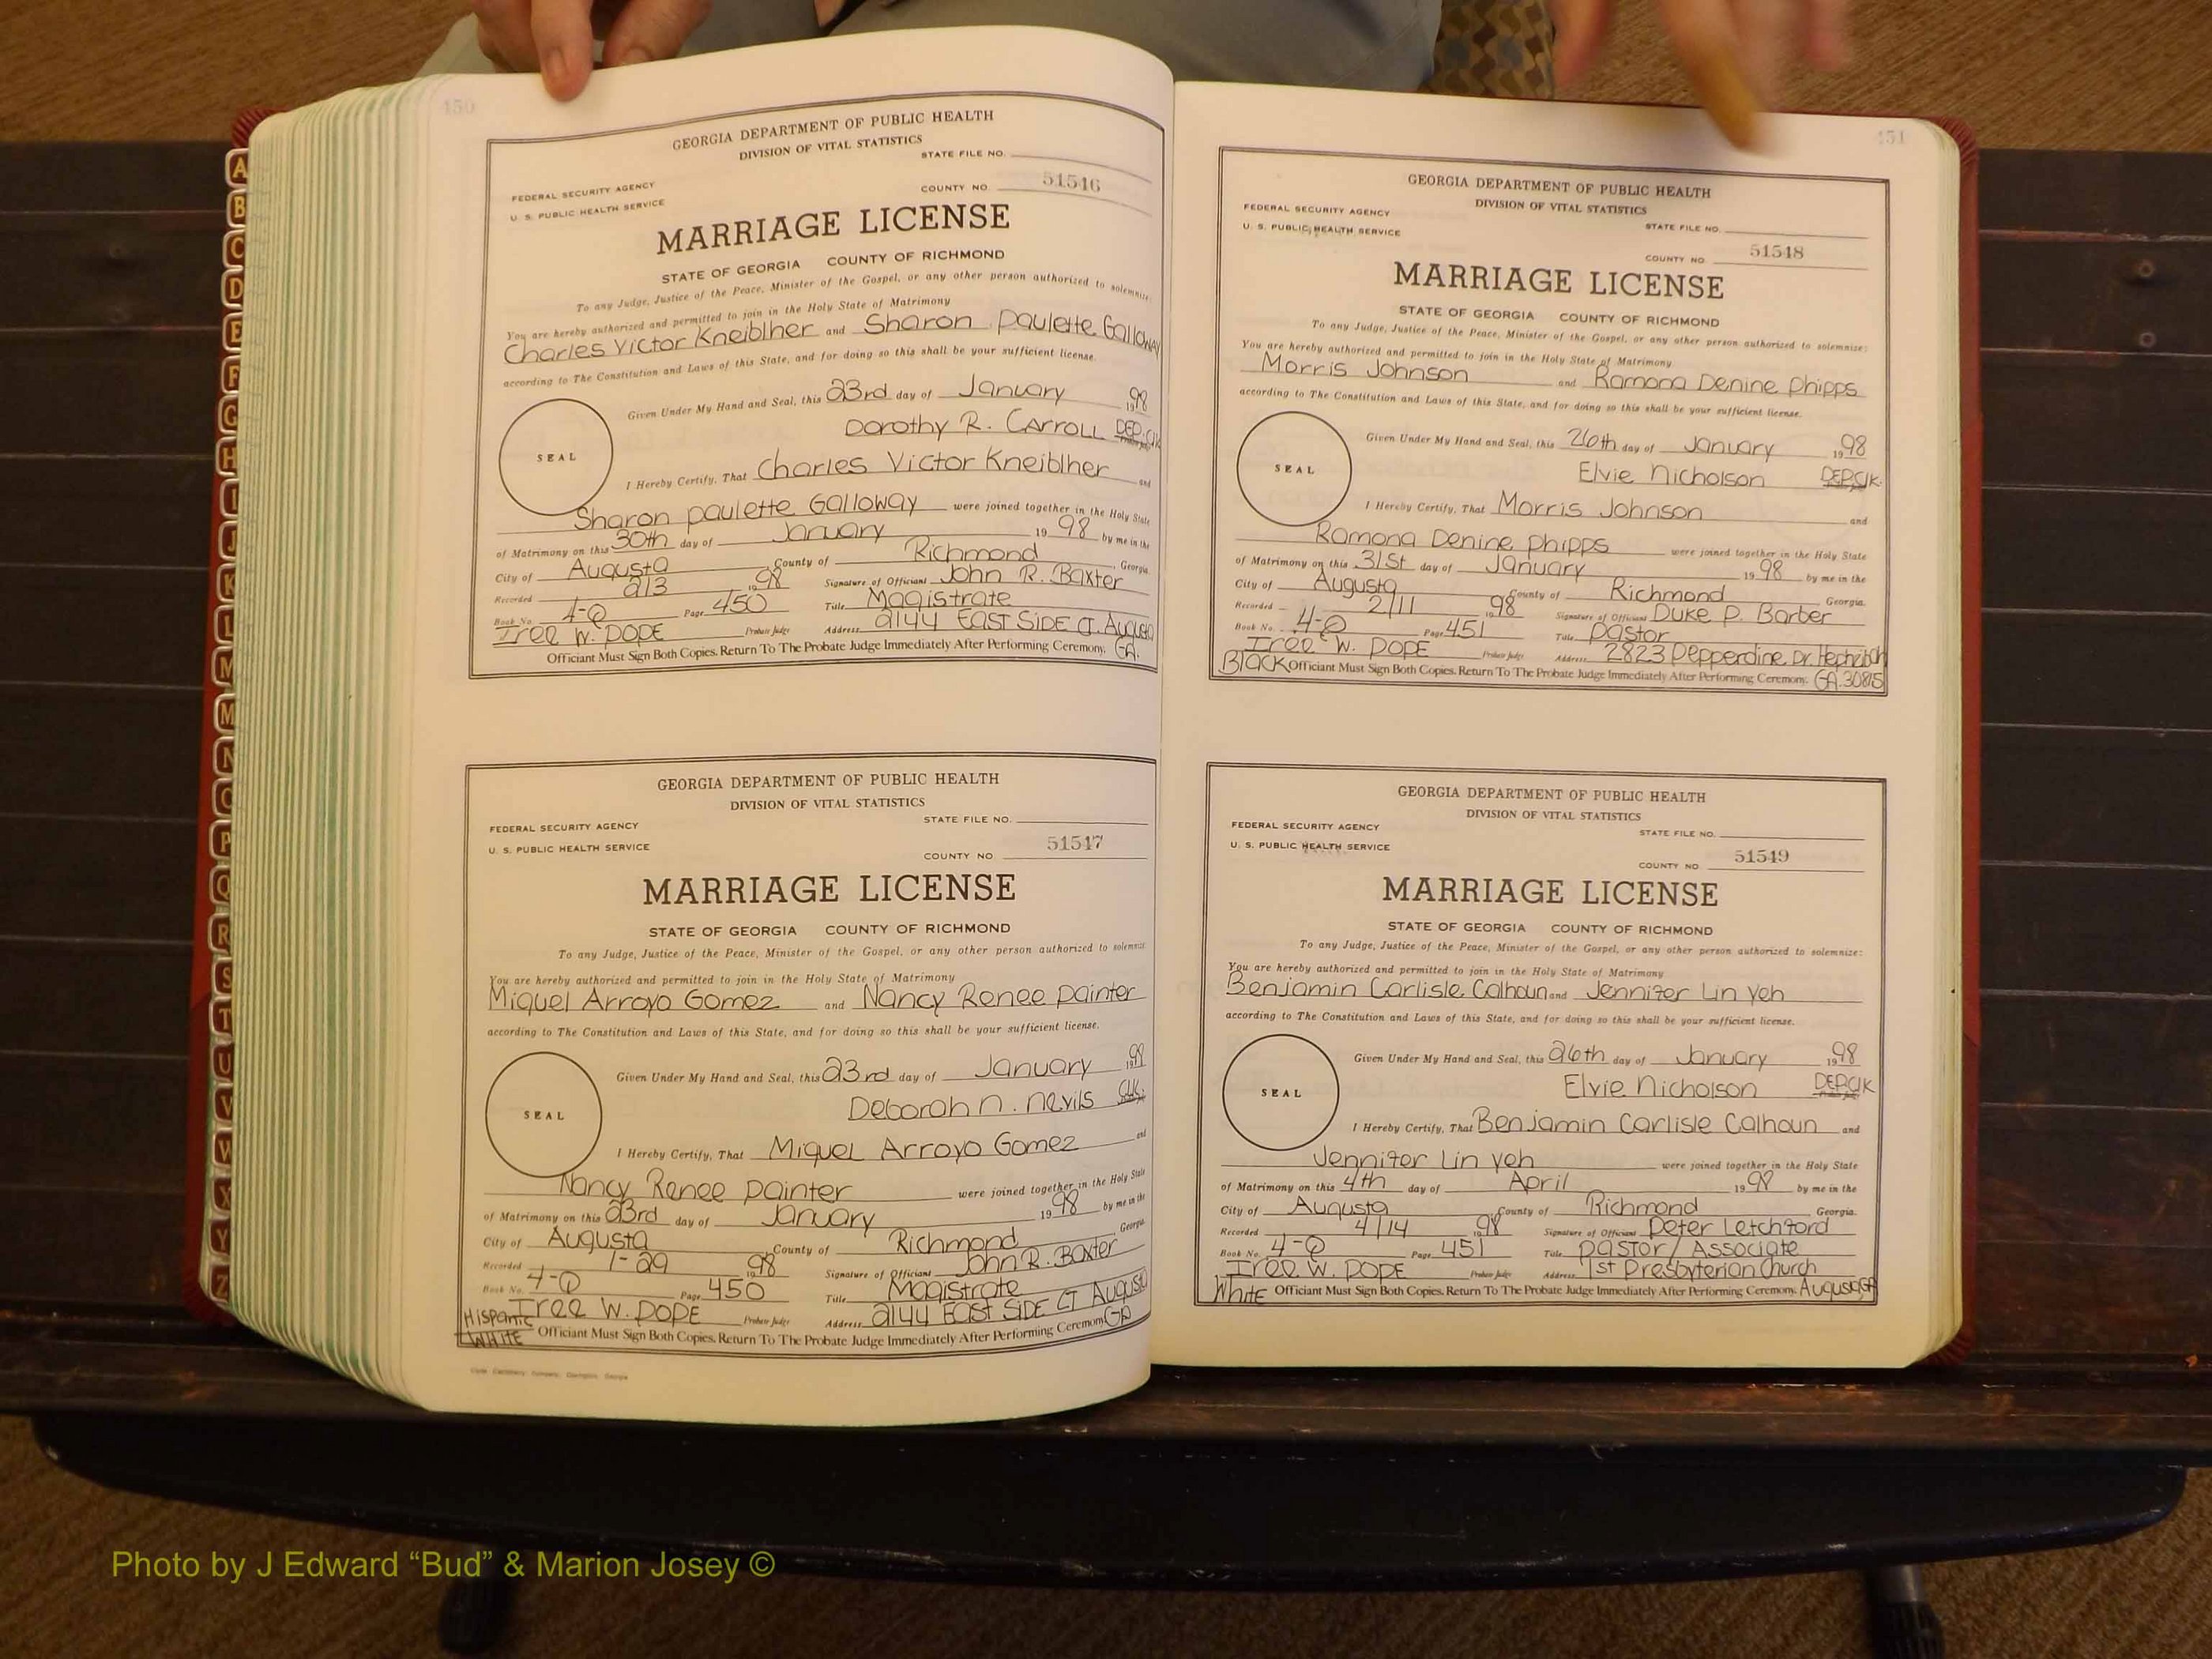 450
GEORGIA DEPARTMENT OF PUBLIC HEALTH
DIVISION OF VITAL STATISTICS
STATE FILE NO.
FEDERAL SECURITY AGENCY
U. S. PUBLIC HEALTH SERVICE
COUNTY NO. 51546
MARRIAGE LICENSE
STATE OF GEORGIA COUNTY OF RICHMOND
To any Judge, Justice of the Peace, Minister of the Gospel, or any other person authorized to solemnize
You are hereby authorized and permitted to join in the Holy State of Matrimony
Charles Victor Kneiblher and Sharon Paulette Galloway
according to The Constitution and Laws of this State, and for doing so this shall be your sufficient license.
Given Under My Hand and Seal, this 23rd day of January 1998
Dorothy R. Carroll DEP. Clk
SEAL
I Hereby Certify, That Charles Victor Kneiblher and
Sharon Paulette Galloway were joined together in the Holy State
of Matrimony on this 30th day of January 1998 by me in the
City of Augusta County of Richmond, Georgia.
Recorded 2/3 1998 Signature of Officiant John R. Baxter
Book No. 4-Q Page 450 Title Magistrate
Iree W. Pope Probate Judge Address 2144 East Side Ct. Augusta
Officiant Must Sign Both Copies. Return To The Probate Judge Immediately After Performing Ceremony. GA.
GEORGIA DEPARTMENT OF PUBLIC HEALTH
DIVISION OF VITAL STATISTICS
STATE FILE NO.
FEDERAL SECURITY AGENCY
U. S. PUBLIC HEALTH SERVICE
COUNTY NO. 51547
MARRIAGE LICENSE
STATE OF GEORGIA COUNTY OF RICHMOND
To any Judge, Justice of the Peace, Minister of the Gospel, or any other person authorized to solemnize
You are hereby authorized and permitted to join in the Holy State of Matrimony
Miguel Arroyo Gomez and Nancy Renee Painter
according to The Constitution and Laws of this State, and for doing so this shall be your sufficient license.
Given Under My Hand and Seal, this 23rd day of January 1998
Deborah N. Nevils Clk.
SEAL
I Hereby Certify, That Miguel Arroyo Gomez and
Nancy Renee Painter were joined together in the Holy State
of Matrimony on this 23rd day of January 1998 by me in the
City of Augusta County of Richmond, Georgia.
Recorded 1-29 1998 Signature of Officiant John R. Baxter
Book No. 4-Q Page 450 Title Magistrate
Iree W. Pope Probate Judge Address 2144 East Side Ct Augusta
Hispanic
White Officiant Must Sign Both Copies. Return To The Probate Judge Immediately After Performing Ceremony. GA
451
GEORGIA DEPARTMENT OF PUBLIC HEALTH
DIVISION OF VITAL STATISTICS
FEDERAL SECURITY AGENCY
STATE FILE NO.
U. S. PUBLIC HEALTH SERVICE
COUNTY NO 51548
MARRIAGE LICENSE
STATE OF GEORGIA COUNTY OF RICHMOND
To any Judge, Justice of the Peace, Minister of the Gospel, or any other person authorized to solemnize:
You are hereby authorized and permitted to join in the Holy State of Matrimony
Morris Johnson and Ramona Denine Phipps
according to The Constitution and Laws of this State, and for doing so this shall be your sufficient license.
Given Under My Hand and Seal, this 26th day of January 1998
Elvie Nicholson DEP. Clk.
SEAL
I Hereby Certify, That Morris Johnson and
Ramona Denine Phipps were joined together in the Holy State
of Matrimony on this 31st day of January 1998 by me in the
City of Augusta County of Richmond Georgia.
Recorded 2/11 1998 Signature of Officiant Duke P. Barber
Book No. 4-Q Page 451 Title Pastor
Iree W. Pope Probate Judge Address 2823 Pepperdine Dr. Hephzibah
Black Officiant Must Sign Both Copies. Return To The Probate Judge Immediately After Performing Ceremony. GA. 30815
GEORGIA DEPARTMENT OF PUBLIC HEALTH
DIVISION OF VITAL STATISTICS
FEDERAL SECURITY AGENCY
STATE FILE NO.
U. S. PUBLIC HEALTH SERVICE
COUNTY NO 51549
MARRIAGE LICENSE
STATE OF GEORGIA COUNTY OF RICHMOND
To any Judge, Justice of the Peace, Minister of the Gospel, or any other person authorized to solemnize:
You are hereby authorized and permitted to join in the Holy State of Matrimony
Benjamin Carlisle Calhoun and Jennifer Lin Yeh
according to The Constitution and Laws of this State, and for doing so this shall be your sufficient license.
Given Under My Hand and Seal, this 26th day of January 1998
Elvie Nicholson DEP. Clk
SEAL
I Hereby Certify, That Benjamin Carlisle Calhoun and
Jennifer Lin Yeh were joined together in the Holy State
of Matrimony on this 4th day of April 1998 by me in the
City of Augusta County of Richmond Georgia.
Recorded 4/14 1998 Signature of Officiant Peter Letchford
Book No. 4-Q Page 451 Title Pastor/Associate
Iree W. Pope Probate Judge Address 1st Presbyterian Church
White Officiant Must Sign Both Copies. Return To The Probate Judge Immediately After Performing Ceremony. Augusta, GA
A
B
C
D
E
F
G
H
I
J
K
L
M
M
N
O
P
Q
R
S
T
U
V
W
X
Y
Z
Photo by J Edward “Bud” & Marion Josey ©